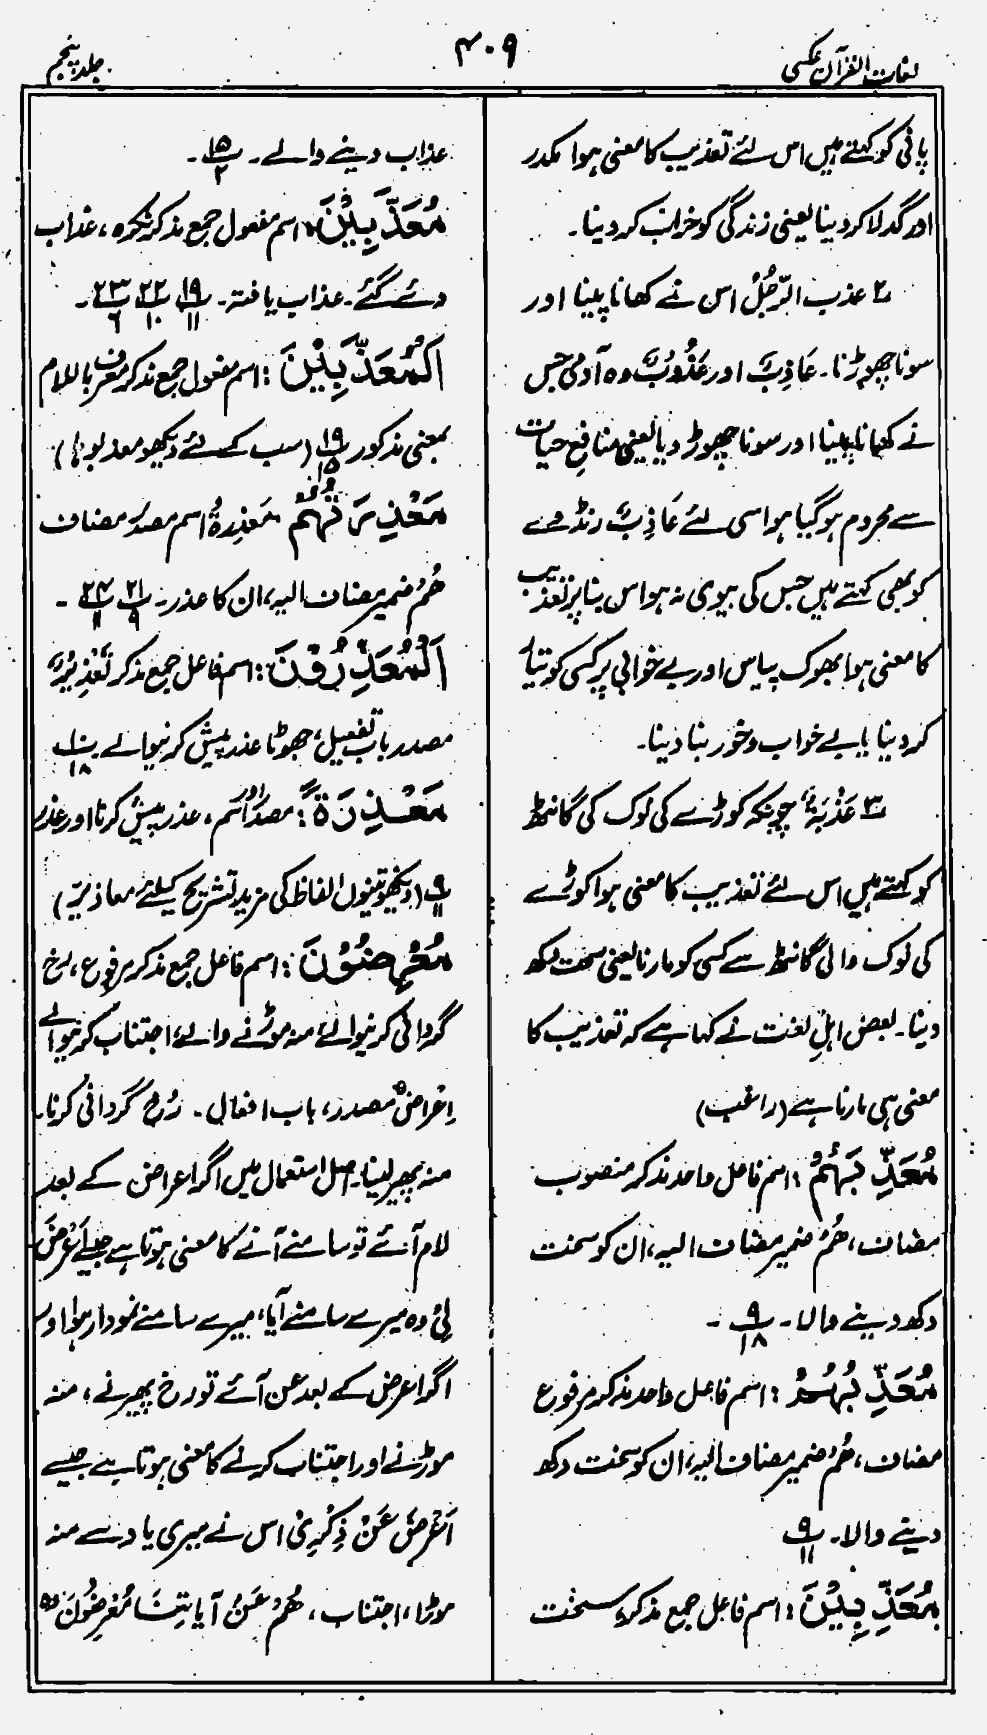 لغات القرآن عکسی
۴۰۹
جلد پنجم
پانی کو کہتے ہیں اس لئے تعذیب کا معنی ہوا مکدر
اور گدلا کر دینا یعنی زندگی کو خراب کر دینا۔
۲ عذب الرّجُلُ اس نے کھانا پینا اور
سونا چھوڑنا۔ عَاذِبٌ اور عَذُوْبٌ وہ آدمی جس
نے کھانا پینا اور سونا چھوڑ دیا یعنی منافعِ حیات
سے محروم ہو گیا ہو اسی لئے عَاذِبٌ رنڈوے
کو بھی کہتے ہیں جس کی بیوی نہ ہو اس بنا پر تعذیب
کا معنی ہوا بھوک پیاس اور بے خوابی پر کسی کو تیار
کر دینا یا بے خواب و خور بنا دینا۔
۳ عَذْبَۃٌ چونکہ کوڑے کی نوک کی گانٹھ
کو کہتے ہیں اس لئے تعذیب کا معنی ہوا کوڑے
کی نوک والی گانٹھ سے کسی کو مارنا یعنی سخت دکھ
دینا۔ بعض اہلِ لغت نے کہا ہے کہ تعذیب کا
معنی ہی مارنا ہے (راغب)
مُعَذِّبَہُمْ : اسم فاعل واحد مذکر منصوب
مضاف، ھُمْ ضمیر مضاف الیہ، ان کو سخت
دکھ دینے والا۔ پ۹/۱۸۔
مُعَذِّبُہُمْ : اسم فاعل واحد مذکر مرفوع
مضاف، ھُمْ ضمیر مضاف الیہ، ان کو سخت دکھ
دینے والا۔ پ۹/۱۱
مُعَذِّبِیْنَ : اسم فاعل جمع مذکر، سخت
عذاب دینے والے۔ پ۱۵/۲۔
مُعَذَّبِیْنَ، اسم مفعول جمع مذکر نکرہ، عذاب
دئے گئے۔ عذاب یافتہ۔ پ۱۹/۱۱ پ۲۲/۱۰ پ۲۳/۶۔
اَلْمُعَذَّبِیْنَ : اسم مفعول جمع مذکر معرف باللام
بمعنی مذکور پ۱۹/۱۵ (سب کے لئے دیکھو معذبوہا)
مَعْذِرَتُہُمْ مَعْذِرَۃُ اسم مصدر مضاف
ھُمْ ضمیر مضاف الیہ، ان کا عذر۔ پ۲۱/۹ پ۲۴/۱۱۔
اَلْمُعَذِّرُوْنَ : اسم فاعل جمع مذکر تَعْذِیْرٌ
مصدر باب تفعیل، جھوٹا عذر پیش کرنیوالے پ۱۰/۱۸
مَعْذِرَۃً : مصدر اور اسم، عذر پیش کرنا اور عذر
پ۹/۱۱ (دیکھو تینوں الفاظ کی مزید تشریح کیلئے معاذیر)
مُعْرِضُوْنَ : اسم فاعل جمع مذکر مرفوع، رخ
گردانی کرنیوالے، منہ موڑنے والے، اجتناب کرنیوالے
اِعْرَاضٌ مصدر، باب افعال۔ رُخ گردانی کرنا۔
منہ پھیر لینا۔ اصل استعمال میں اگر اعراض کے بعد
لام آئے تو سامنے آنے کا معنی ہوتا ہے جیسے اَعْرَضَ
لِیْ وہ میرے سامنے آیا، میرے سامنے نمودار ہوا اور
اگر اعرض کے بعد عن آئے تو رخ پھیرنے، منہ
موڑنے اور اجتناب کرنے کا معنی ہوتا ہے جیسے
اَعْرَضَ عَنْ ذِکْرِیْ اس نے میری یاد سے منہ
موڑا، اجتناب، ھُمْ عَنْ آیَاتِنَا مُعْرِضُوْنَ